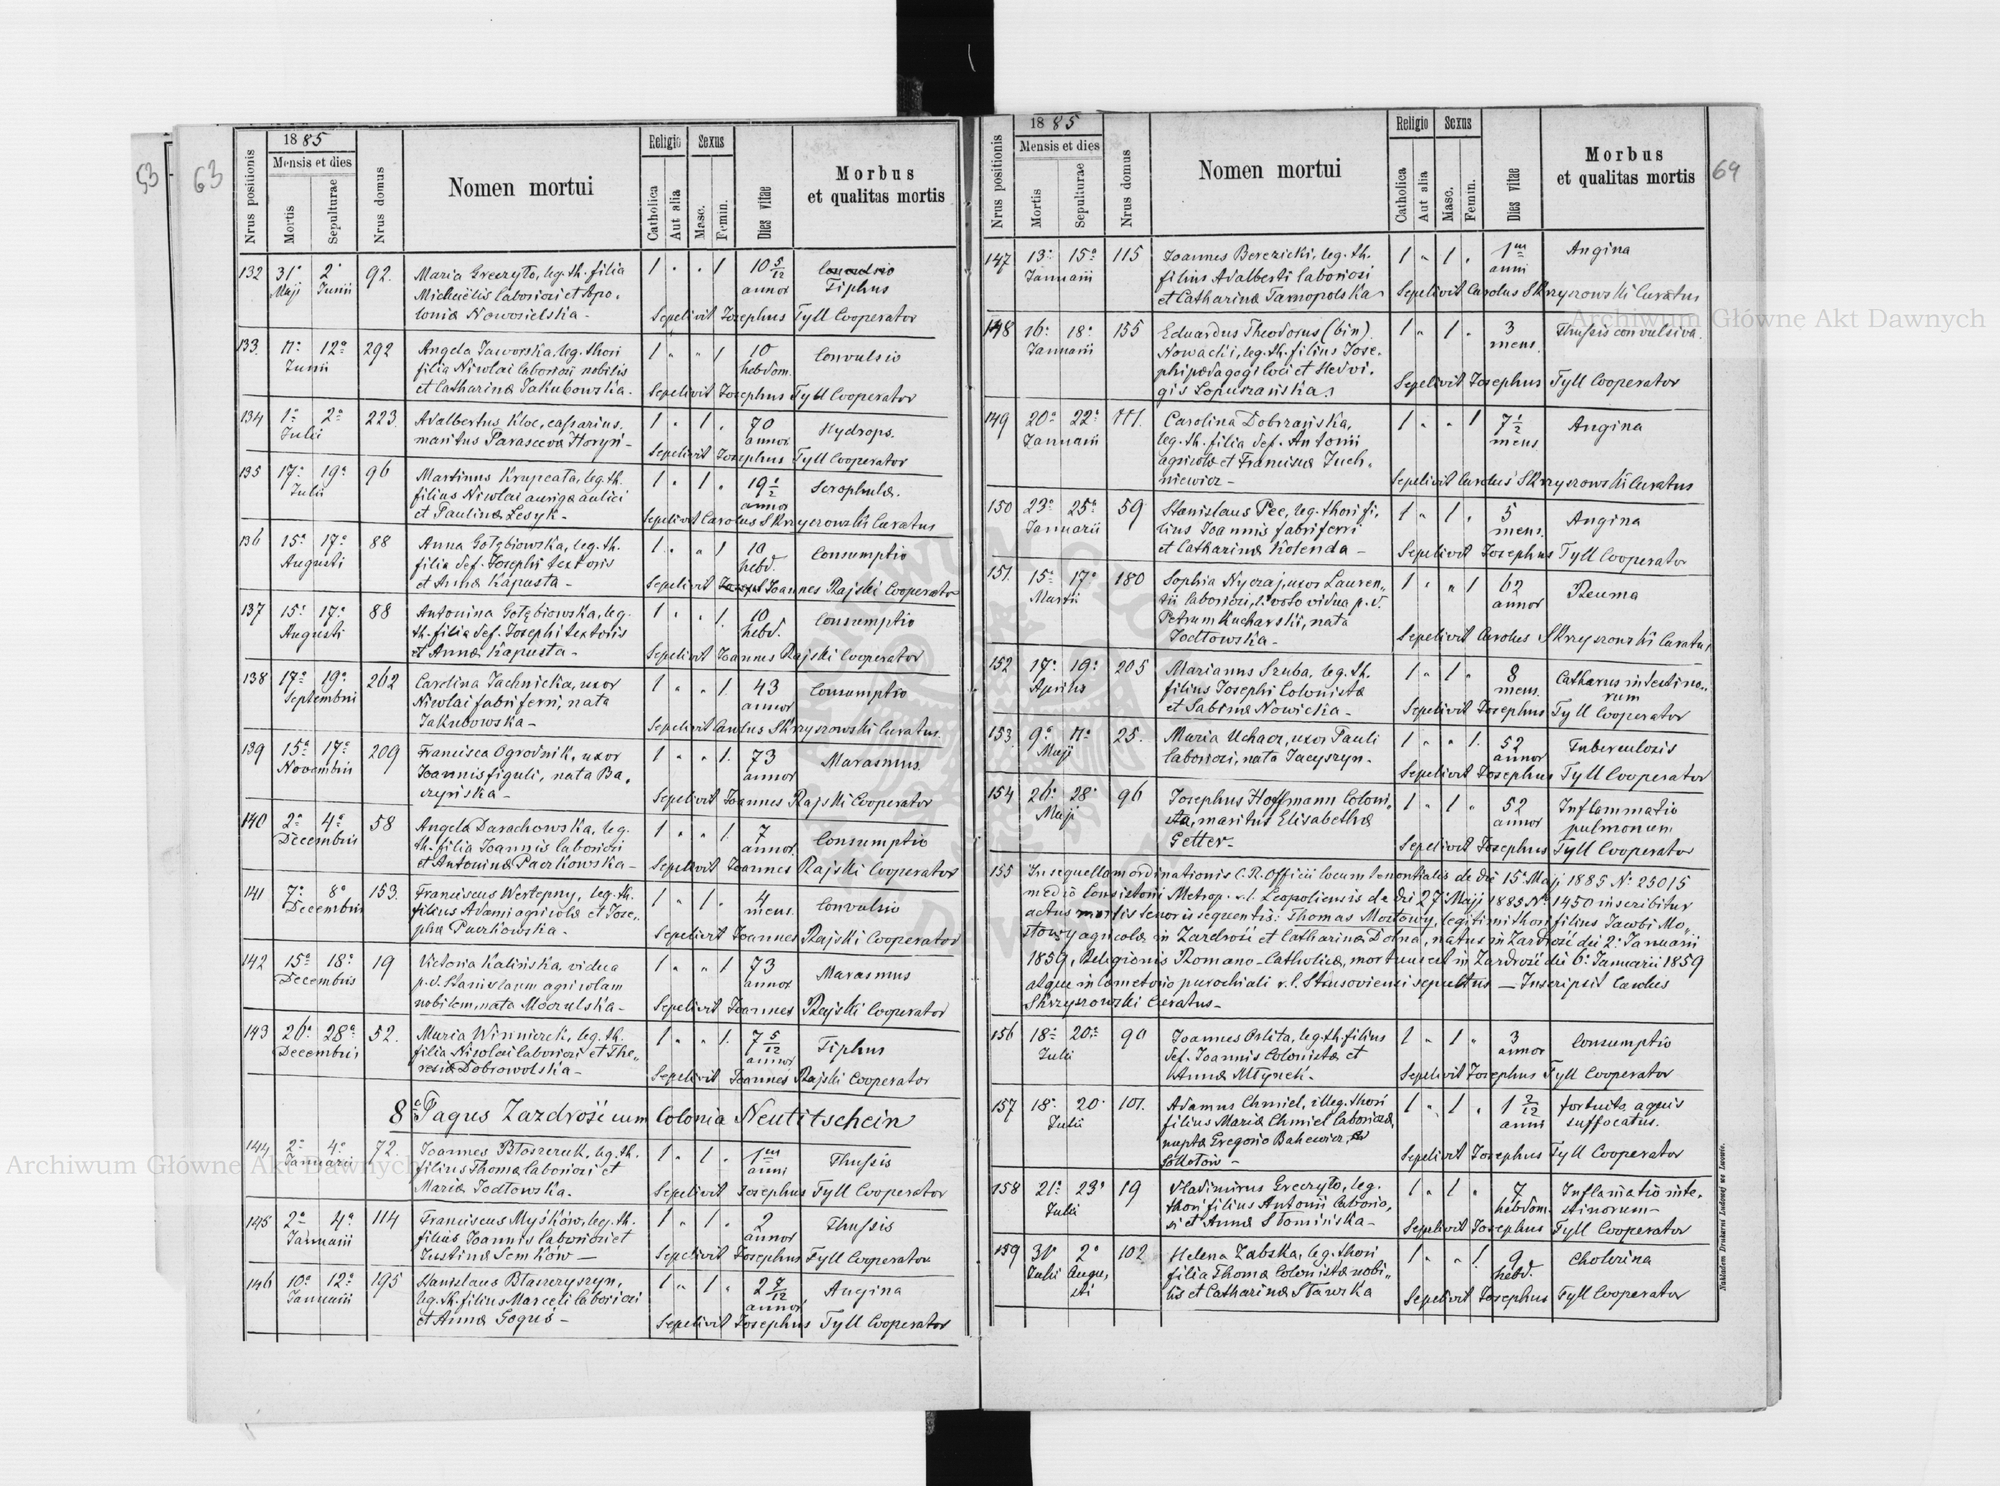 53
63
1885
Nrus positionis
Mensis et dies
Mortis
Sepulturae
Nrus domus
Nomen mortui
Religio
Catholica
Aut alia
Sexus
Masc.
Femin.
Dies vitae
Morbus
et qualitas mortis
132 31a 2a 92. Maria Greczyło, leg. th. filia 1 " " 1 10 5/12 Convulsio
Maji Junii Michaëlis laboriosi et Apo- annor Tiphus
lonia Nowosielska - Sepelivit Josephus Tyll Cooperator
133. 11a 12a 292 Angela Jaworska, leg. thori 1 " " 1 10 Convulsio
Junii filia Nicolai laboriosi nobilis hebdom.
et Catharina Jakubowska. Sepelivit Josephus Tyll Cooperator
134 1a 2a 223. Adalbertus Kloc, 1 " 1 " 70 Hydrops.
Julii maritus Parasceva Horyń - annor
Sepelivit Josephus Tyll Cooperator
135 17a 19a 96 Martinus Krupcata, leg. th. 1 " 1 " 19 1/2 Scrophulæ.
Julii filius Nicolai aurigæ aulici annor
et Paulinæ Lesyk - Sepelivit Carolus Skrzyszowski Curatus
136 15a 17a 88 Anna Gołębiowska, leg. th. 1 " " 1 10 Consumptio
Augusti filia def. Josephi textoris hebd.
et Annæ Kapusta - Sepelivit Joannes Rajski Cooperator
137 15a 17a 88 Antonina Gołębiowska, leg. 1 " " 1. 10 Consumptio
Augusti th. filia def. Josephi textoris hebd.
et Annæ Kapusta - Sepelivit Joannes Rajski Cooperator
138 17a 19a 262 Carolina Jachnicka, uxor 1 " " 1. 43 Consumptio
Septembris Nicolai fabri ferri, nata annor
Jakubowska - Sepelivit Carolus Skrzyszowski Curatus
139 15a 17a 209 Francisca Ogrodnik, uxor 1 " " 1. 73 Marasmus.
Novembris Joannis figuli, nata Ba- annor
czyńska - Sepelivit Joannes Rajski Cooperator
140 2a 4a 58 Angela Darachowska, leg. 1 " " 1. 7 Consumptio
Decembris th. filia Joannis laboriosi annor.
et Antonina Paczkowska - Sepelivit Joannes Rajski Cooperator
141 7a 8a 153. Franciscus Wertepny, leg. th. 1 " 1 " 4 Convulsio
Decembris filius Adami agricolæ et Jose- mens.
pha Paczkowska. Sepelivit Joannes Rajski Cooperator
142 15a 18a 19 Victoria Kalińska, vidua 1 " " 1 73 Marasmus
Decembris p. d. Stanislaum agricolam annor
nobilem, nata Moczulska - Sepelivit Joannes Rajski Cooperator
143 26a 28a 52. Maria Winnicek, leg. th. 1 " " 1. 7 5/12 Tiphus
Decembris filia Nicolai laboriosi et The- annor
resiæ Dobrowolska - Sepelivit Joannes Rajski Cooperator
8 Pagus Zazdrość cum Colonia Neutitschein
144 2a 4a 72. Joannes Błaszczuk, leg. th. 1 " 1 " 1um Thussis
Januarii filius Thomæ laboriosi et anni
Mariæ Jodłowska. Sepelivit Josephus Tyll Cooperator
145 2a 4a 114 Franciscus Myśków, leg. th. 1 " 1 " 2 Thussis
Januarii filius Joannis laboriosi et annor
Justinæ Semków - Sepelivit Josephus Tyll Cooperator.
146 10a 12a 195 Stanislaus Błaszczyszyn, 1 " 1 " 2 7/12 Angina
Januarii leg. th. filius Marceli laboriosi annor
et Annæ Goguś - Sepelivit Josephus Tyll Cooperator
1885
Nrus positionis
Mensis et dies
Mortis
Sepulturae
Nrus domus
Nomen mortui
Religio
Catholica
Aut alia
Sexus
Masc.
Femin.
Dies vitae
Morbus
et qualitas mortis
64
147 13a 15a 115 Joannes Berezicki, leg. th. 1 " 1 " 1um Angina
Januarii filius Adalberti laboriosi anni
et Catharinæ Tarnopolska Sepelivit Carolus Skrzyszowski Curatus
148 16a 18a 155 Eduardus Theodorus (bin) 1 " 1 " 3 Thussis convulsiva.
Januarii Nowacki, leg. th. filius Jose- mens.
phi pædagogi loci et Hedvi- Sepelivit Josephus Tyll Cooperator
gis Łopuszańska.
149 20a 22a 171. Carolina Dobrzańska, 1 " " 1 7 1/2 Angina
Januarii leg. th. filia def. Antonii mens.
agricolæ et Franciscæ Juch-
niewicz - Sepelivit Carolus Skrzyszowski Curatus
150 23a 25a 59 Stanislaus Pec, leg. thori fi- 1 " 1 " 5 Angina
Januarii lius Joannis fabri ferri mens.
et Catharinæ Kolenda - Sepelivit Josephus Tyll Cooperator
151. 15a 17a 180 Sophia Nyczaj, uxor Lauren- 1 " " 1 62 Reuma
Martii tii laboriosi, 1o voto vidua p. d. annor
Petrum Kucharski, nata
Jodłowska - Sepelivit Carolus Skrzyszowski Curatus
152 17a 19a 205 Marianus Szuba, leg. th. 1 " 1 " 8 Catharus intestino-
Aprilis filius Josephi Colonistæ mens. rum
et Sabinæ Nowicka - Sepelivit Josephus Tyll Cooperator
153. 9a 11a 25. Maria Uchacz, uxor Pauli 1 " " 1. 52 Tuberculosis
Maji laboriosi, nata Jacyszyn - annor
Sepelivit Josephus Tyll Cooperator
154 26a 28a 96 Josephus Hoffmann Coloni- 1 " 1 " 52 Inflammatio
Maji sta, maritus Elisabethæ annor pulmonum
Getter - Sepelivit Josephus Tyll Cooperator
155 In sequellam ordinationis C. R. Officii locum tenentialis de die 15 Maji 1885 No 25015
medio Consistorii Metrop. r. l. Leopoliensis de die 27 Maji 1885 No 1450 inscribitur
actus mortis tenoris sequentis: Thomas Mostowy, legitimi thori filius Jacobi Mo-
stowy agricolæ in Zazdrość et Catharinæ Dolna, natus in Zazdrość die 2a Januarii
1859, Religionis Romano-Catholicæ, mortuus est in Zazdrość die 6a Januarii 1859
atque in cœmeterio parochiali r. l. Strusoviensi sepultus - Inscripsit Carolus
Skrzyszowski Curatus -
156 18a 20a 90 Joannes Orlita, leg. th. filius 1 " 1 " 3 Consumptio
Julii def. Joannis Colonistæ et annor
Annæ Młynek - Sepelivit Josephus Tyll Cooperator
157 18a 20a 101. Adamus Chmiel, illeg. thori 1 " 1 " 1 3/12 fortuito aquis
Julii filius Mariæ Chmiel laboriosæ, anni suffocatus.
nuptæ Gregorio Bahewicz, Sepelivit Josephus Tyll Cooperator
158 21a 23a 19 Vladimirus Greczyło, leg. 1 " 1 " 7 Inflamatio inte-
Julii thori filius Antonii laborio- hebdom. stinorum -
si et Annæ Słomińska - Sepelivit Josephus Tyll Cooperator
159 31a 2a 102. Helena Zabska, leg. thori 1 " " 1. 9 Cholerina
Julii Augu- filia Thomæ Colonistæ nobi- hebd.
sti lis et Catharinæ Stawska Sepelivit Josephus Tyll Cooperator
Nakładem Drukarni Ludowej we Lwowie.
Archiwum Główne Akt Dawnych
Archiwum Główne Akt Dawnych
Archiwum Główne Akt Dawnych